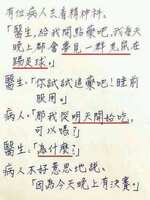 有位病人去看精神科。
「醫生，給我開點藥吧，我每天
晚上都會夢見一群老鼠在
踢足球。」
醫生：「你試試這藥吧！睡前
服用。」
病人：「那我從明天開始吃，
可以嗎？」
醫生：「為什麼？」
病人不好意思地說：
「因為今天晚上有決賽。」